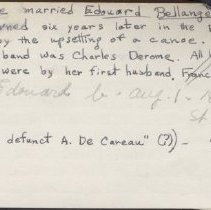 e married Edouard Bellange
ned six years later in the
by the upsetting of a canoe.
band was Charles Derome. All
were by her first husband, Franc
Edouard b. Aug. 1.
St
defunct A. De Careau" (?) -